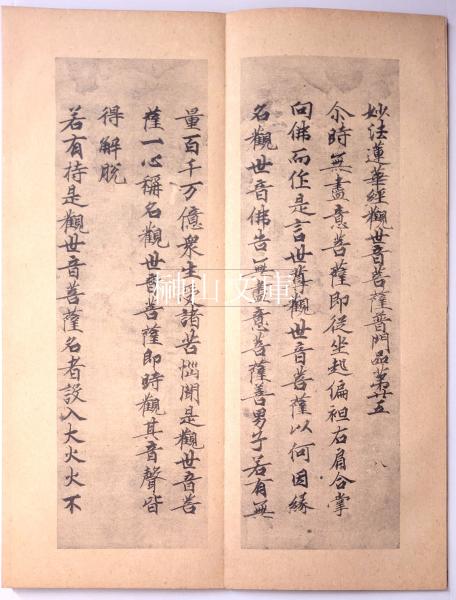 妙法蓮華經觀世音菩薩普門品苐廿五
尒時無盡意菩薩即從坐起偏袒右肩合掌
向佛而作是言世尊觀世音菩薩以何因緣
名觀世音佛告無盡意菩薩善男子若有無
量百千万億衆生受諸苦惱聞是觀世音菩
薩一心稱名觀世音菩薩即時觀其音聲皆
得解脫
若有持是觀世音菩薩名者設入大火火不
榊山文庫